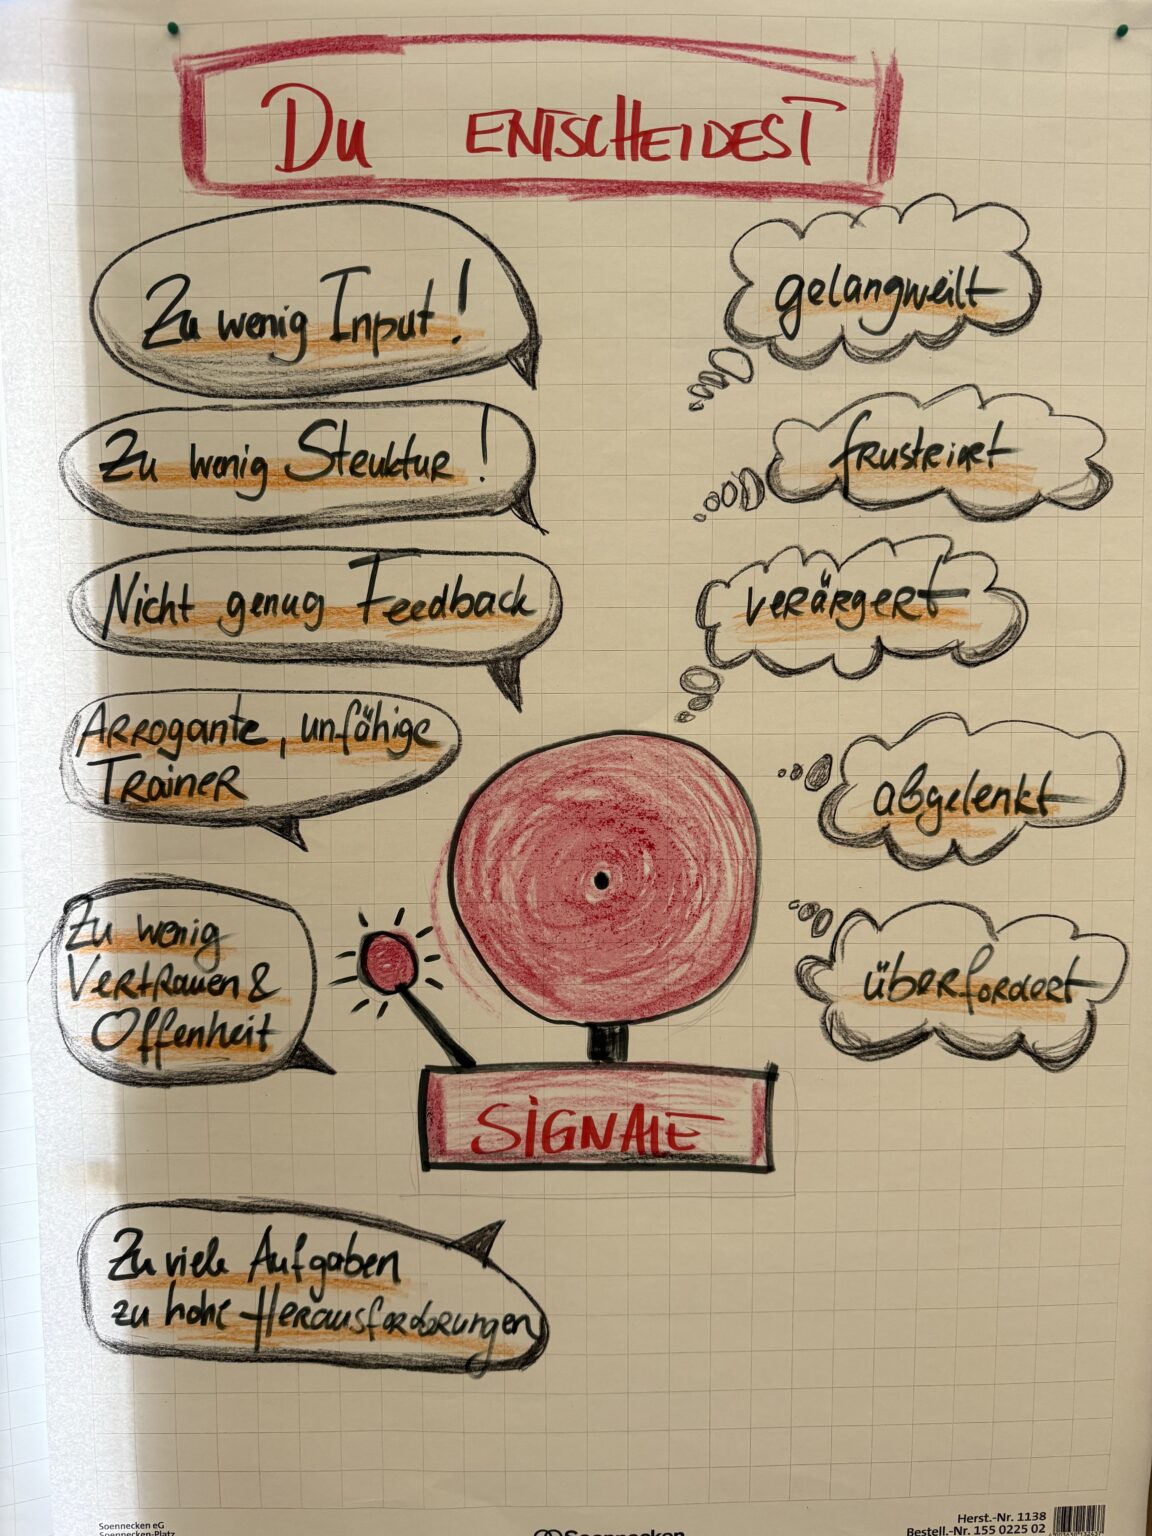 Du ENTSCHEIDEST
Zu wenig Input!
Zu wenig Struktur!
Nicht genug Feedback
Arrogante, unfähige
Trainer
Zu wenig
Vertrauen &
Offenheit
gelangweilt
frustriert
verärgert
abgelenkt
überfordert
SIGNALE
Zu viele Aufgaben
zu hohe Herausforderungen
Soennecken eG
Soennecken-Platz
Soennecken
Herst.-Nr. 1138
Bestell.-Nr. 155 0225 02